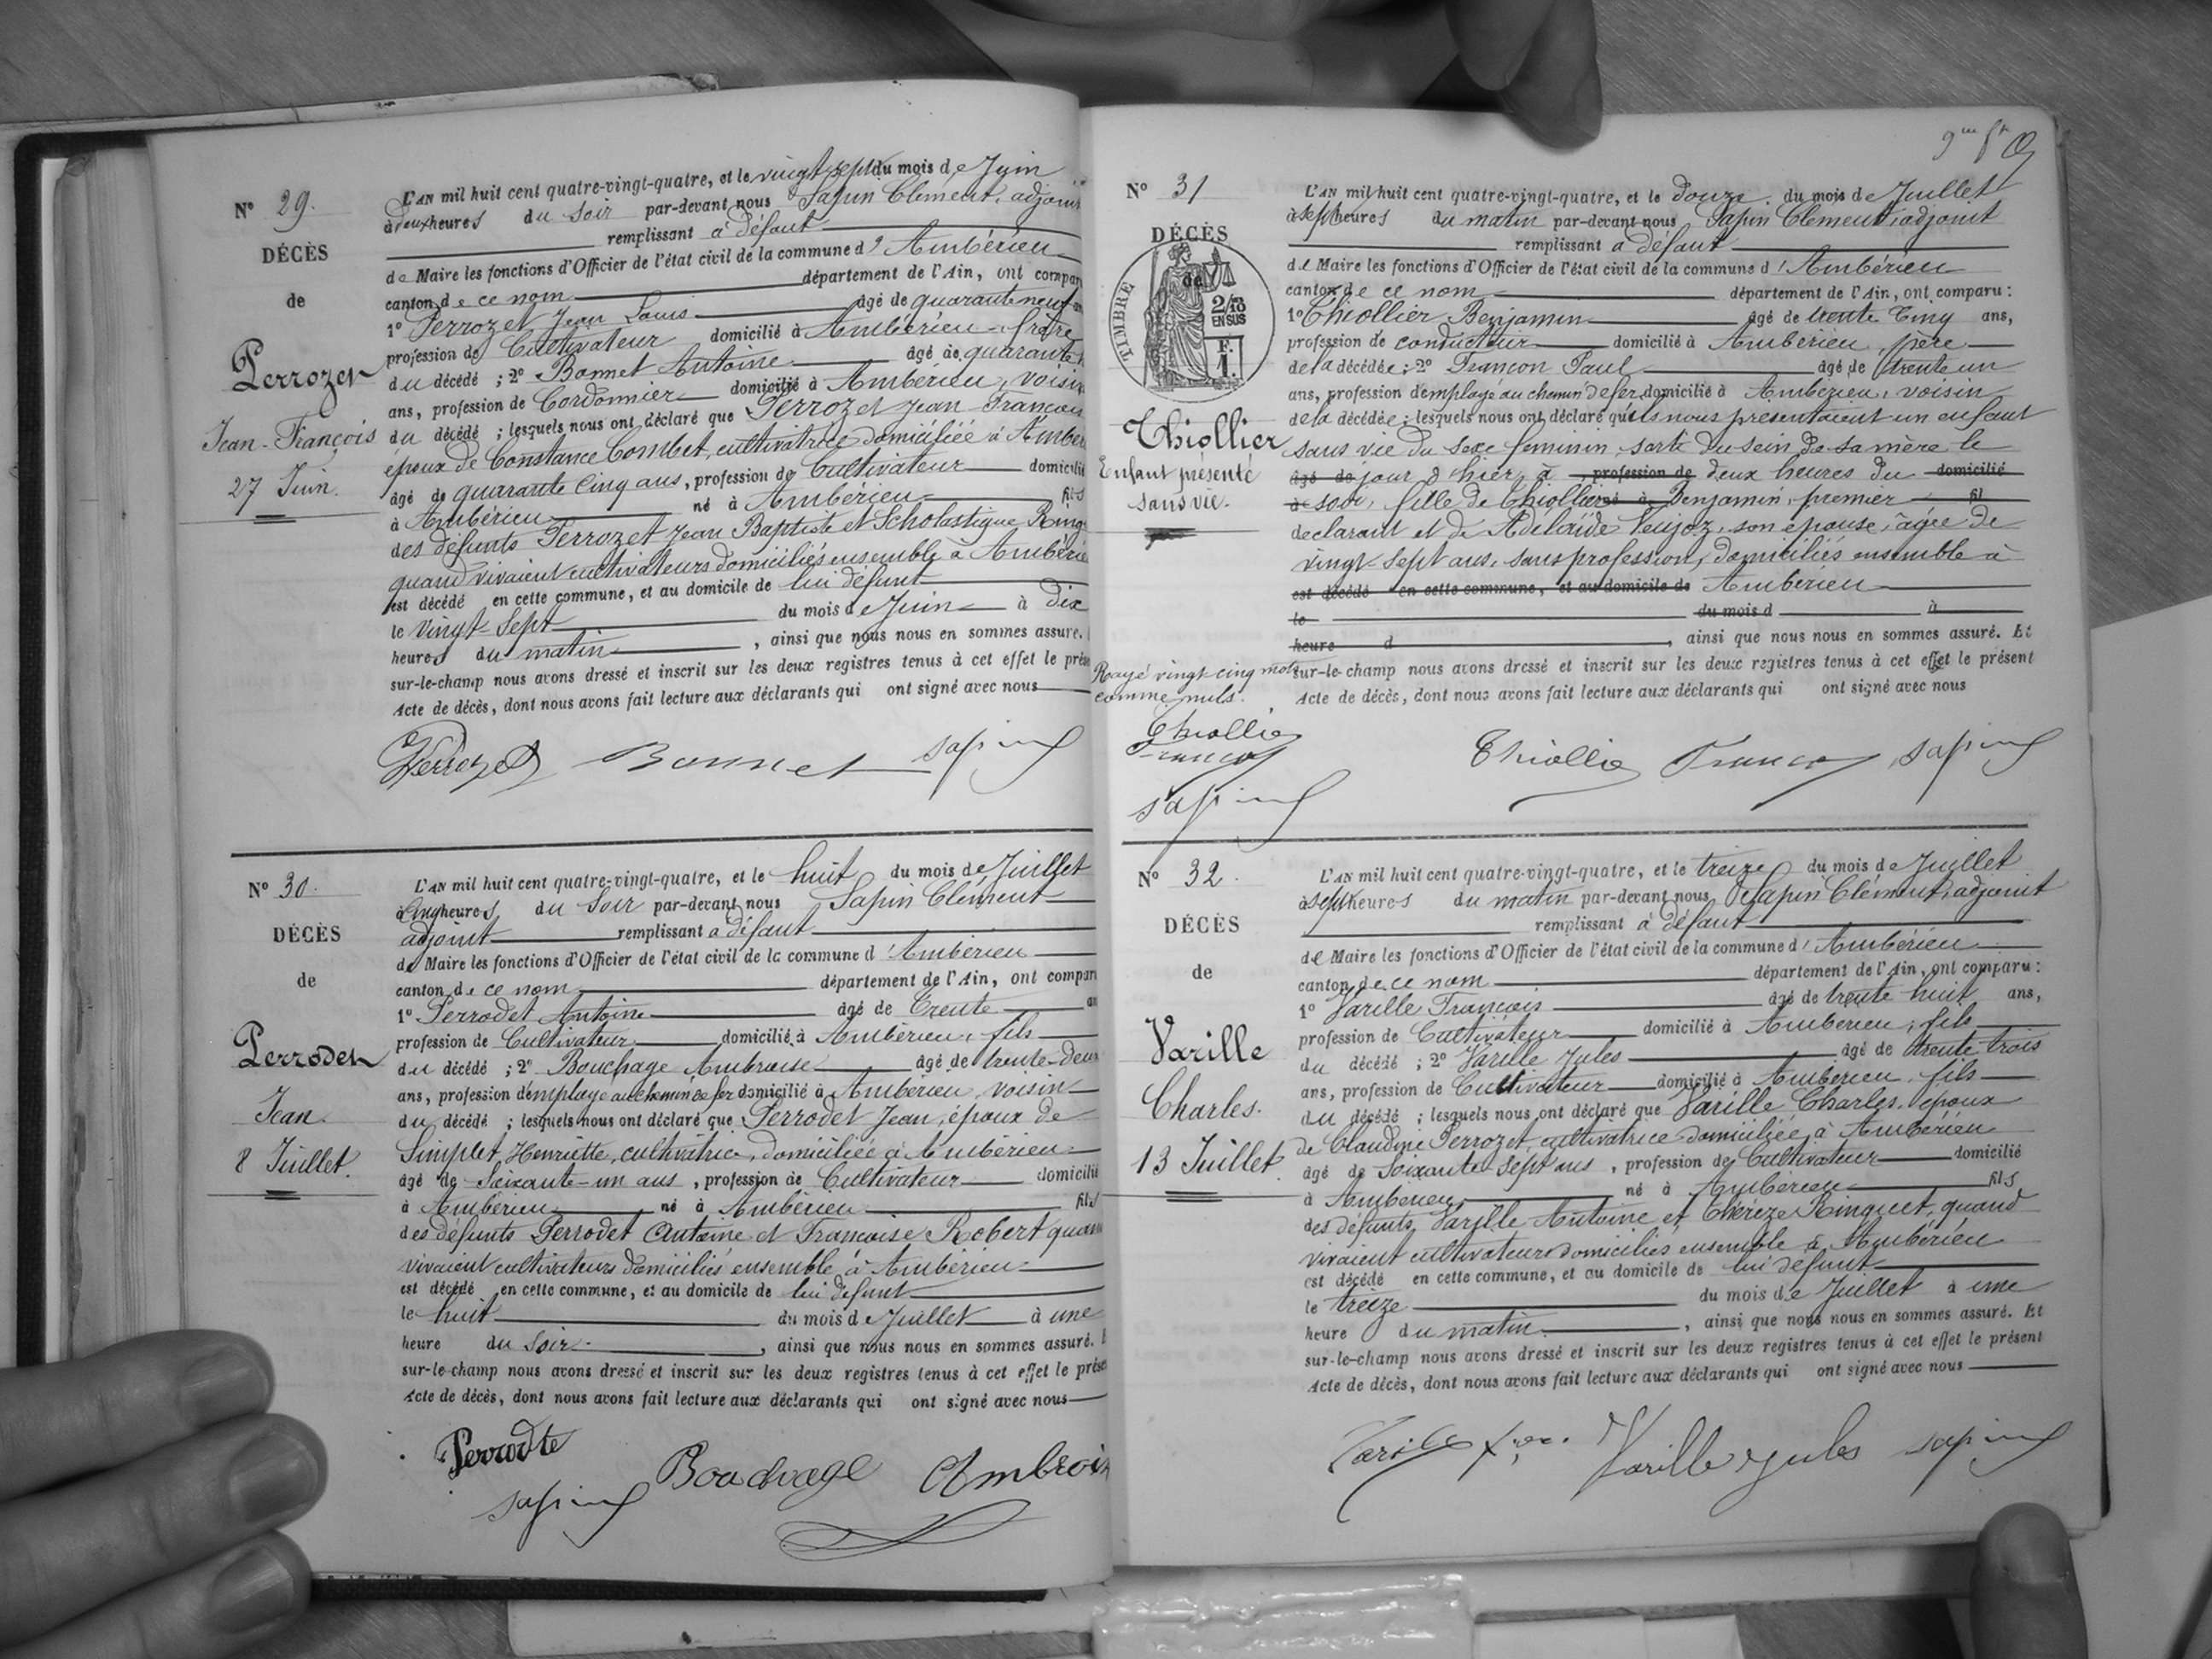 N° 29.
DÉCÈS
de
Perrozet
Jean-François
27 Juin.
L'AN mil huit cent quatre-vingt-quatre, et le vingt sept du mois de Juin
à deux heures du soir par-devant nous Sapin Clément, adjoint
remplissant à défaut
de Maire les fonctions d'Officier de l'état civil de la commune d' Ambérieu
canton de ce nom département de l'Ain, ont compar
1° Perrozet Jean Louis âgé de quarante neuf
profession de Cultivateur domicilié à Ambérieu frère
du décédé ; 2° Bonnet Antoine âgé de quarante
ans, profession de Cordonnier domicilié à Ambérieu, voisin
du décédé ; lesquels nous ont déclaré que Perrozet Jean-François
époux de Constance Combet, cultivatrice domiciliée à Ambér
âgé de quarante cinq ans, profession de Cultivateur domicilié
à Ambérieu né à Ambérieu fils
des défunts Perrozet Jean Baptiste et Scholastique Ring
quand vivaient cultivateurs domiciliés ensemble à Ambérie
est décédé en cette commune, et au domicile de lui défunt
le vingt-sept du mois de Juin à dix
heures du matin, ainsi que nous nous en sommes assuré.
sur-le-champ nous avons dressé et inscrit sur les deux registres tenus à cet effet le prés
Acte de décès, dont nous avons fait lecture aux déclarants qui ont signé avec nous
Perrozet Bonnet Sapin
N° 30.
DÉCÈS
de
Perrodet
Jean.
8 Juillet.
L'AN mil huit cent quatre-vingt-quatre, et le huit du mois de Juillet
à cinq heures du soir par-devant nous Sapin Clément
adjoint remplissant à défaut
de Maire les fonctions d'Officier de l'état civil de la commune d' Ambérieu
canton de ce nom département de l'Ain, ont compar
1° Perrodet Antoine âgé de trente an
profession de Cultivateur domicilié à Ambérieu, fils
du décédé ; 2° Bouchage Ambroise âgé de trente-deux
ans, profession d'employé au chemin de fer domicilié à Ambérieu, voisin
du décédé ; lesquels nous ont déclaré que Perrodet Jean, époux de
Simplet, Henriette, cultivatrice, domiciliée à Ambérieu
âgé de soixante-un ans, profession de Cultivateur domicilié
à Ambérieu né à Ambérieu fils
des défunts Perrodet Antoine et Françoise Robert quan
vivaient cultivateurs domiciliés ensemble à Ambérieu
est décédé en cette commune, et au domicile de lui défunt
le huit du mois de Juillet à une
heure du soir, ainsi que nous nous en sommes assuré.
sur-le-champ nous avons dressé et inscrit sur les deux registres tenus à cet effet le prése
Acte de décès, dont nous avons fait lecture aux déclarants qui ont signé avec nous
Perrodte
Sapin Bouchage Ambrois
N° 31
DÉCÈS
de
TIMBRE
2/10
EN SUS
F.
1.
Thiollier
Enfant présenté
sans vie.
L'AN mil huit cent quatre-vingt-quatre, et le douze du mois de Juillet
à sept heures du matin par-devant nous Sapin Clément adjoint
remplissant à défaut
de Maire les fonctions d'Officier de l'état civil de la commune d' Ambérieu
canton de ce nom département de l'Ain, ont comparu :
1° Thiollier Benjamin âgé de trente cinq ans,
profession de conducteur domicilié à Ambérieu, père
de la décédée ; 2° Françon Paul âgé de trente un
ans, profession d'employé au chemin de fer domicilié à Ambérieu, voisin
de la décédée ; lesquels nous ont déclaré qu'ils nous présentaient un enfant
sans vie du sexe féminin, sorte du sein de sa mère le
âgé de jour d'hier, à profession de deux heures du domicilié
à soir, fille de Thiollier né à Benjamin, premier fil
déclarant et de Adélaïde son épouse, âgée de
vingt-sept ans, sans profession, domiciliés ensemble à
est décédé en cette commune, et au domicile de Ambérieu
le du mois d à
heure d, ainsi que nous nous en sommes assuré. Et
sur-le-champ nous avons dressé et inscrit sur les deux registres tenus à cet effet le présent
Acte de décès, dont nous avons fait lecture aux déclarants qui ont signé avec nous
Rayé vingt-cinq mots
comme nuls.
Thiollier
Françon
Sapin
Thiollier Françon Sapin
N° 32.
DÉCÈS
de
Varille
Charles.
13 Juillet.
L'AN mil huit cent quatre-vingt-quatre, et le treize du mois de Juillet
à sept heures du matin par-devant nous Sapin Clément, adjoint
remplissant à défaut
de Maire les fonctions d'Officier de l'état civil de la commune d' Ambérieu
canton de ce nom département de l'Ain, ont comparu :
1° Varille François âgé de trente huit ans,
profession de Cultivateur domicilié à Ambérieu, fils
du décédé ; 2° Varille Jules âgé de trente trois
ans, profession de Cultivateur domicilié à Ambérieu, fils
du décédé ; lesquels nous ont déclaré que Varille Charles, époux
de Claudine Perrozet, cultivatrice domiciliée à Ambérieu
âgé de soixante-sept ans, profession de Cultivateur domicilié
à Ambérieu né à Ambérieu fils
des défunts, Varille Antoine et Thérèze Ringuet, quand
vivaient cultivateurs domiciliés ensemble à Ambérieu
est décédé en cette commune, et au domicile de lui défunt
le treize du mois de Juillet à une
heure du matin, ainsi que nous nous en sommes assuré. Et
sur-le-champ nous avons dressé et inscrit sur les deux registres tenus à cet effet le présent
Acte de décès, dont nous avons fait lecture aux déclarants qui ont signé avec nous
Varille Varille jules Sapin